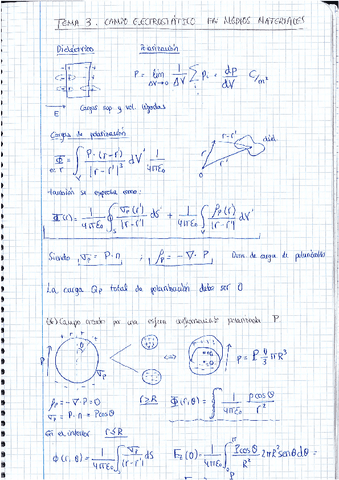 TEMA 3. CAMPO ELECTROSTÁTICO EN MEDIOS MATERIALES
Dieléctricos Polarización
P = lim ΔV→0 1/ΔV Σ Pi = dP/dV C/m²
E Cargas sup y vol. ligadas
Cargas de polarización
Φ = ∫v P·(r-r')/|r-r'|³ dV' 1/4πε₀
r r-r' 0
También se expresa como:
Φ(r) = 1/4πε₀ ∮s σp(r')/|r-r'| ds' + 1/4πε₀ ∫v ρp(r')/|r-r'| dV'
Siendo σp = P·n ; ρp = -∇·P Dens de carga de polarización
La carga Qp total de polarización debe ser 0
Campo creado por una esfera uniformemente polarizada P.
P σp P = P 4/3 πR³
ρp = -∇·P = 0 r≥R Φ(r,θ) = 1/4πε₀ p cosθ/r²
σp = P·n = P cosθ
En el interior r≤R
Φ(r,θ) = 1/4πε₀ ∫ σp/|r-r'| ds E₂(0) = -1/4πε₀ ∫ P cosθ/R² 2πR² senθ dθ =